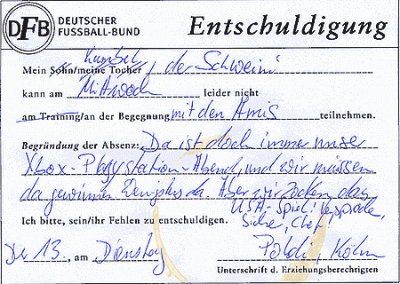 DFB DEUTSCHER FUSSBALL-BUND Entschuldigung
Mein Sohn/meine Tocher Kumbel, der Schweini
kann am Mittwoch leider nicht
am Training/an der Begegnung mit den Amis teilnehmen.
Begründung der Absenz: Da ist doch immer unser
Xbox-Playstation-Abend, und wir müssen
da gewinnen. Aber wir zocken das
USA-Spiel, versproche,
Ich bitte, sein/ihr Fehlen zu entschuldigen. Chef!
Der 13., am Dienstag Poldi, Köln
Unterschrift d. Erziehungsberechtigten